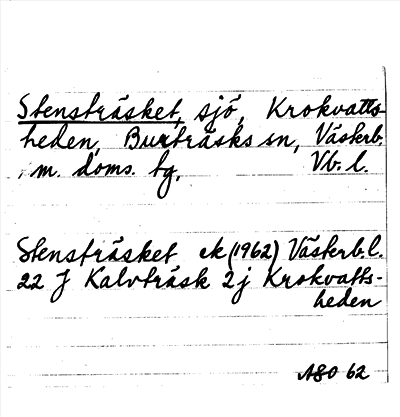 Stensträsket, sjö, Krokvatts-
heden, Burträsks sn, Västerb.
m. doms. tg, Vb. l.
Stensträsket ek (1962) Västerb. l.
22 J Kalvträsk 2 j Krokvatts-
heden
ASO 62